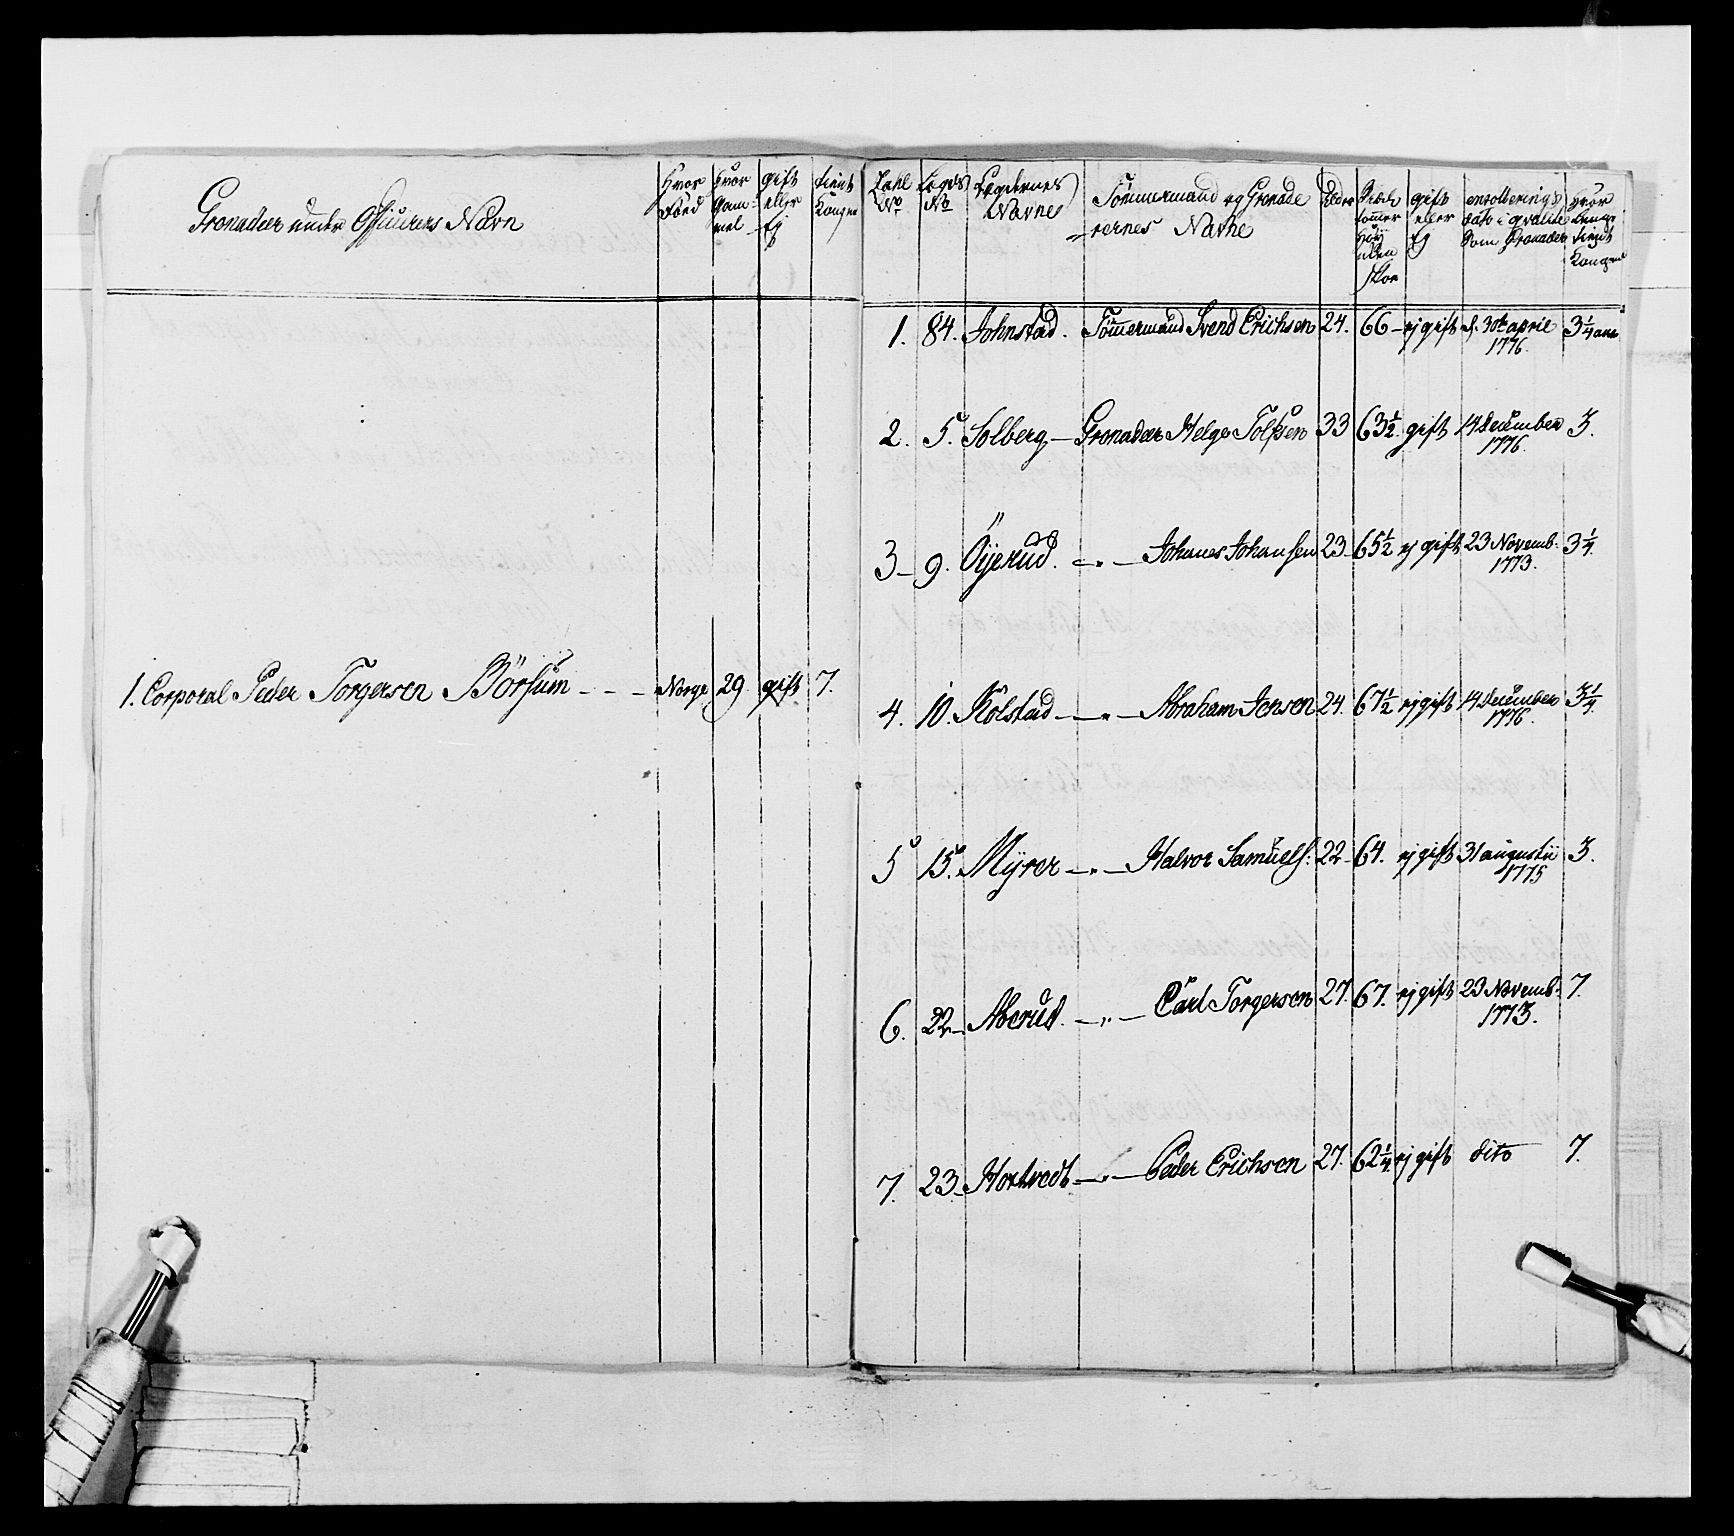 Grenadeer under Officerers Navn
Hvor Fœd
Hvor Gam- mel
gift eller Ej
tient Kongen
1. Corporal Peder Torgersen Börsum - - - Norge 29 gift 7.
Tahl No
Legds No
Legdernes Navne
Tömmermand og Grenade rernes Navne
Alder
tommer Höÿ uden Skoe
gift eller Ej
enrollerings dato i qvalite som Grenader
Hvor Lenge tient Kongen
1. 84. Johnstad. Tömmermand Svend Erichsen 24. 66 - ej gift d. 30te april 1776. 3 1/4 aar
2. 5. Solberg - Grenadeer Helge Tolfsen 33 63 1/2 gift 14 december 1776. 3.
3 - 9. Öÿerud. - " - Johanes Johansen 23 - 65 1/2 ej gift 23 Novemb. 1773. 3 1/4.
4. 10. Kolstad - " - Abraham Jensen 24. 67 1/2 ej gift 14 december 1776. 3 1/4.
5 15. Mÿrer - " - Halvor Samuels: 22 - 64. ej gift 31 augustii 1775 3.
6. 22 - Aaerud. - " - Carl Torgersen 27. 67. ej gift 23 Novemb. 1773. 7.
7. 23. Hortvedt - " - Peder Erichsen 27. 62 1/4 ej gift dito 7.